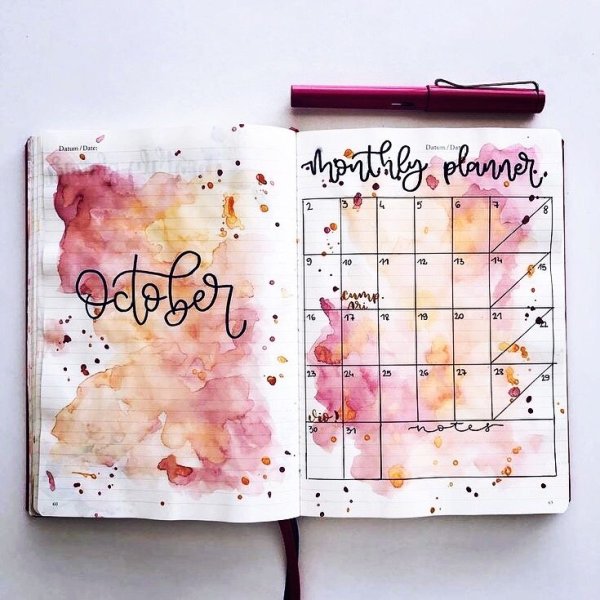 Datum / Date:
October
60
Datum / Date:
monthly planner
2 3 4 5 6 7 8
9 10 11 12 13 14 15
cump.
Ari
16 17 18 19 20 21 22
23 24 25 26 27 28 29
30 31 notes